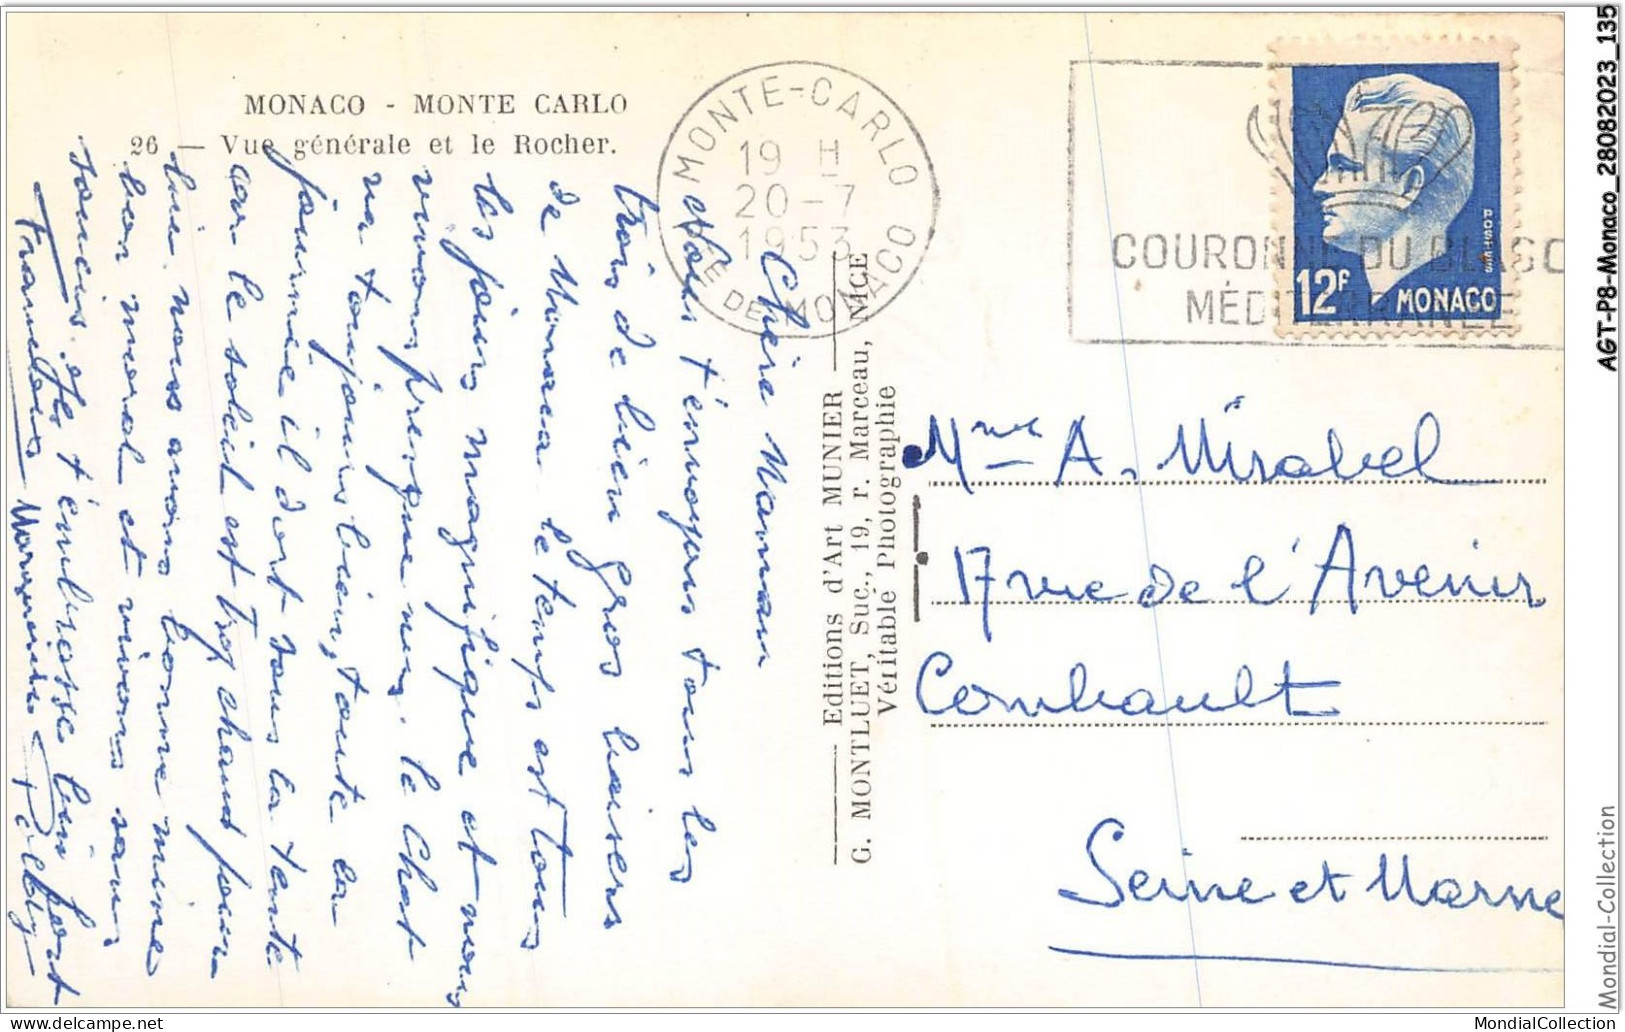 MONACO - MONTE CARLO
26 — Vue générale et le Rocher.
MONTE-CARLO
19 H
20-7
1953
PTÉ DE MONACO
COURONNE DU BLASO
MÉDITERRANÉE
POSTES
12F
MONACO
Chère Maman
Nous t'envoyons tous les
trois de bien gros baisers
de Monaco le temps est tous
les jours magnifique et nous
vivons presque nus. le Chat
va toujours bien, toute la
journée il dort sous la tente
car le soleil est trop chaud pour
lui nous avons bonne mine
bon moral et vivons sans
soucis. Je t'embrasse bien fort
Editions d'Art MUNIER
G. MONTLUET, Suc., 19, r. Marceau, NICE
Véritable Photographie
Mme A. Mirabel
17 rue de l'Avenir
Combault
Seine et Marne
AGT-P8-Monaco_28082023_135
Mondial-Collection
delcampe.net
MondialCollection